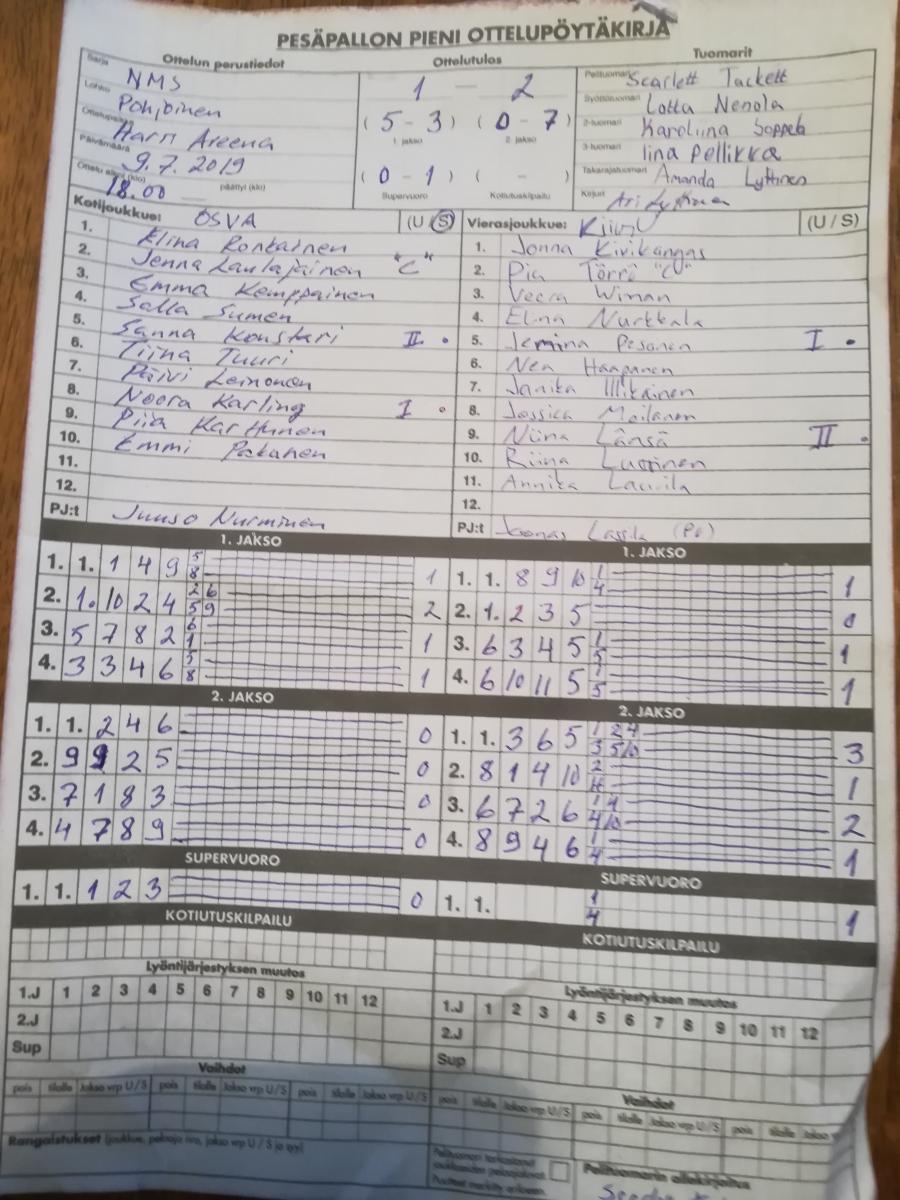 PESÄPALLON PIENI OTTELUPÖYTÄKIRJA
Ottelun perustiedot Ottelutulos Tuomarit
Sarja NMS 1 — 2 Pelituomari Scarlett Tackett
Lohko Pohjoinen (5-3) (0-7) Syöttötuomari Lotta Nenola
Ottelupaikka Harri Areena 1. jakso 2. jakso 2-tuomari Karoliina
Päivämäärä 9.7.2019 3-tuomari Iina Pellikka
Ottelu alkoi (klo) 18.00 päättyi (klo) (0-1) ( - ) Takarajatuomari Amanda Lyttinen
Supervuoro Kotiutuskilpailu Kirjuri Ari
Kotijoukkue: OSVA (U / S) Vierasjoukkue: (U / S)
1. Elina Ronkainen 1. Jonna Kivikangas
2. Jenna Laulajainen "C" 2. Pia Törrö "C"
3. Emma Kemppainen 3. Veera Wiman
4. Salla Sumen 4. Elina Nurkkala
5. Sanna Koustari II . 5. Jemina Pesonen I .
6. Tiina Tuuri 6. Nea Haapanen
7. Päivi Leinonen 7. Janika Illikainen
8. Noora Karling I . 8. Jessica Moilanen
9. Piia Karhunen 9. Niina Länsä II .
10. Emmi Pakanen 10. Riina Luttinen
11. 11. Annika Laurila
12. 12.
PJ:t Juuso Nurminen PJ:t Joonas Lassila
1. JAKSO 1. JAKSO
1. 1. 1 4 9 5 8 1 1. 1. 8 9 10 1 4 1
2. 1. 10 2 4 2 6 5 9 2 2. 1. 2 3 5 0
3. 5 7 8 2 6 1 1 3. 6 3 4 5 1 5 1
4. 3 3 4 6 5 8 1 4. 6 10 11 5 1 5 1
2. JAKSO 2. JAKSO
1. 1. 2 4 6 0 1. 1. 3 6 5 1 2 4 3 5 10 3
2. 9 9 2 5 0 2. 8 1 4 10 2 1
3. 7 1 8 3 0 3. 6 7 2 6 1 4 4 10 2
4. 4 7 8 9 0 4. 8 9 4 6 1 4 1
SUPERVUORO SUPERVUORO
1. 1. 1 2 3 0 1. 1. 1 4 1
KOTIUTUSKILPAILU KOTIUTUSKILPAILU
Lyöntijärjestyksen muutos Lyöntijärjestyksen muutos
1.J 1 2 3 4 5 6 7 8 9 10 11 12 1.J 1 2 3 4 5 6 7 8 9 10 11 12
2.J 2.J
Sup Sup
Vaihdot Vaihdot
pois tilalle Jakso vrp U / S pois tilalle Jakso vrp U / S pois tilalle Jakso vrp U / S pois tilalle Jakso vrp U / S pois tilalle Jakso vrp U / S pois tilalle Jakso
Rangaistukset (joukkue, pelaaja nro, jakso vrp U / S ja syy)
Pelituomarin allekirjoitus